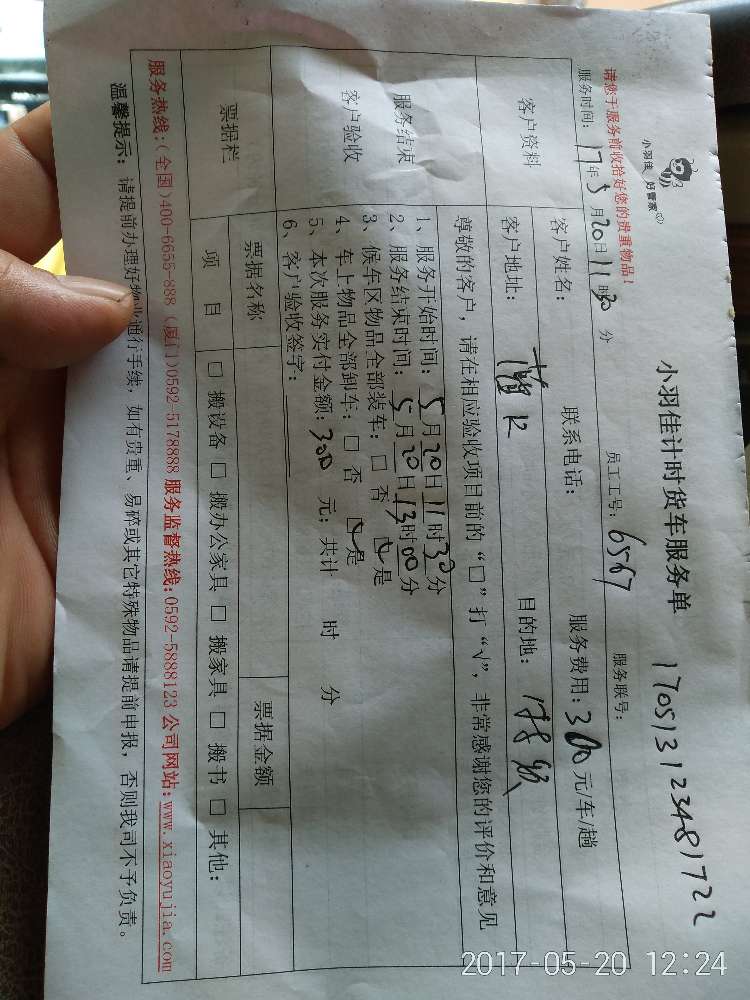 小羽佳 好管家
小羽佳计时货车服务单 170513123481722
请您于服务前收拾好您的贵重物品!
服务时间: 17年5月20日11时30分 员工工号: 6567 服务联号:
客户资料
客户姓名: 联系电话: 服务费用:300元/车/趟
客户地址: 目的地:
服务结束
客户验收
尊敬的客户,请在相应验收项目前的“□”打“√”,非常感谢您的评价和意见
1、服务开始时间:5月20日11时30分
2、服务结束时间:5月20日13时00分
3、候车区物品全部装车:□ 否 ☑ 是
4、车上物品全部卸车:□ 否 ☑ 是
5、本次服务实付金额:300 元; 共计 时 分
6、客户验收签字:
票据栏
票据名称 票据金额
项 目 □ 搬设备 □ 搬办公家具 □ 搬家具 □ 搬书 □ 其他:
服务热线:(全国)400-6655-888 (厦门)0592-5178888 服务监督热线:0592-5888123 公司网站:www.xiaoyujia.com
温馨提示: 请提前办理好物业通行手续,如有贵重、易碎或其它特殊物品请提前申报,否则我司不予负责。
2017-05-20 12:24